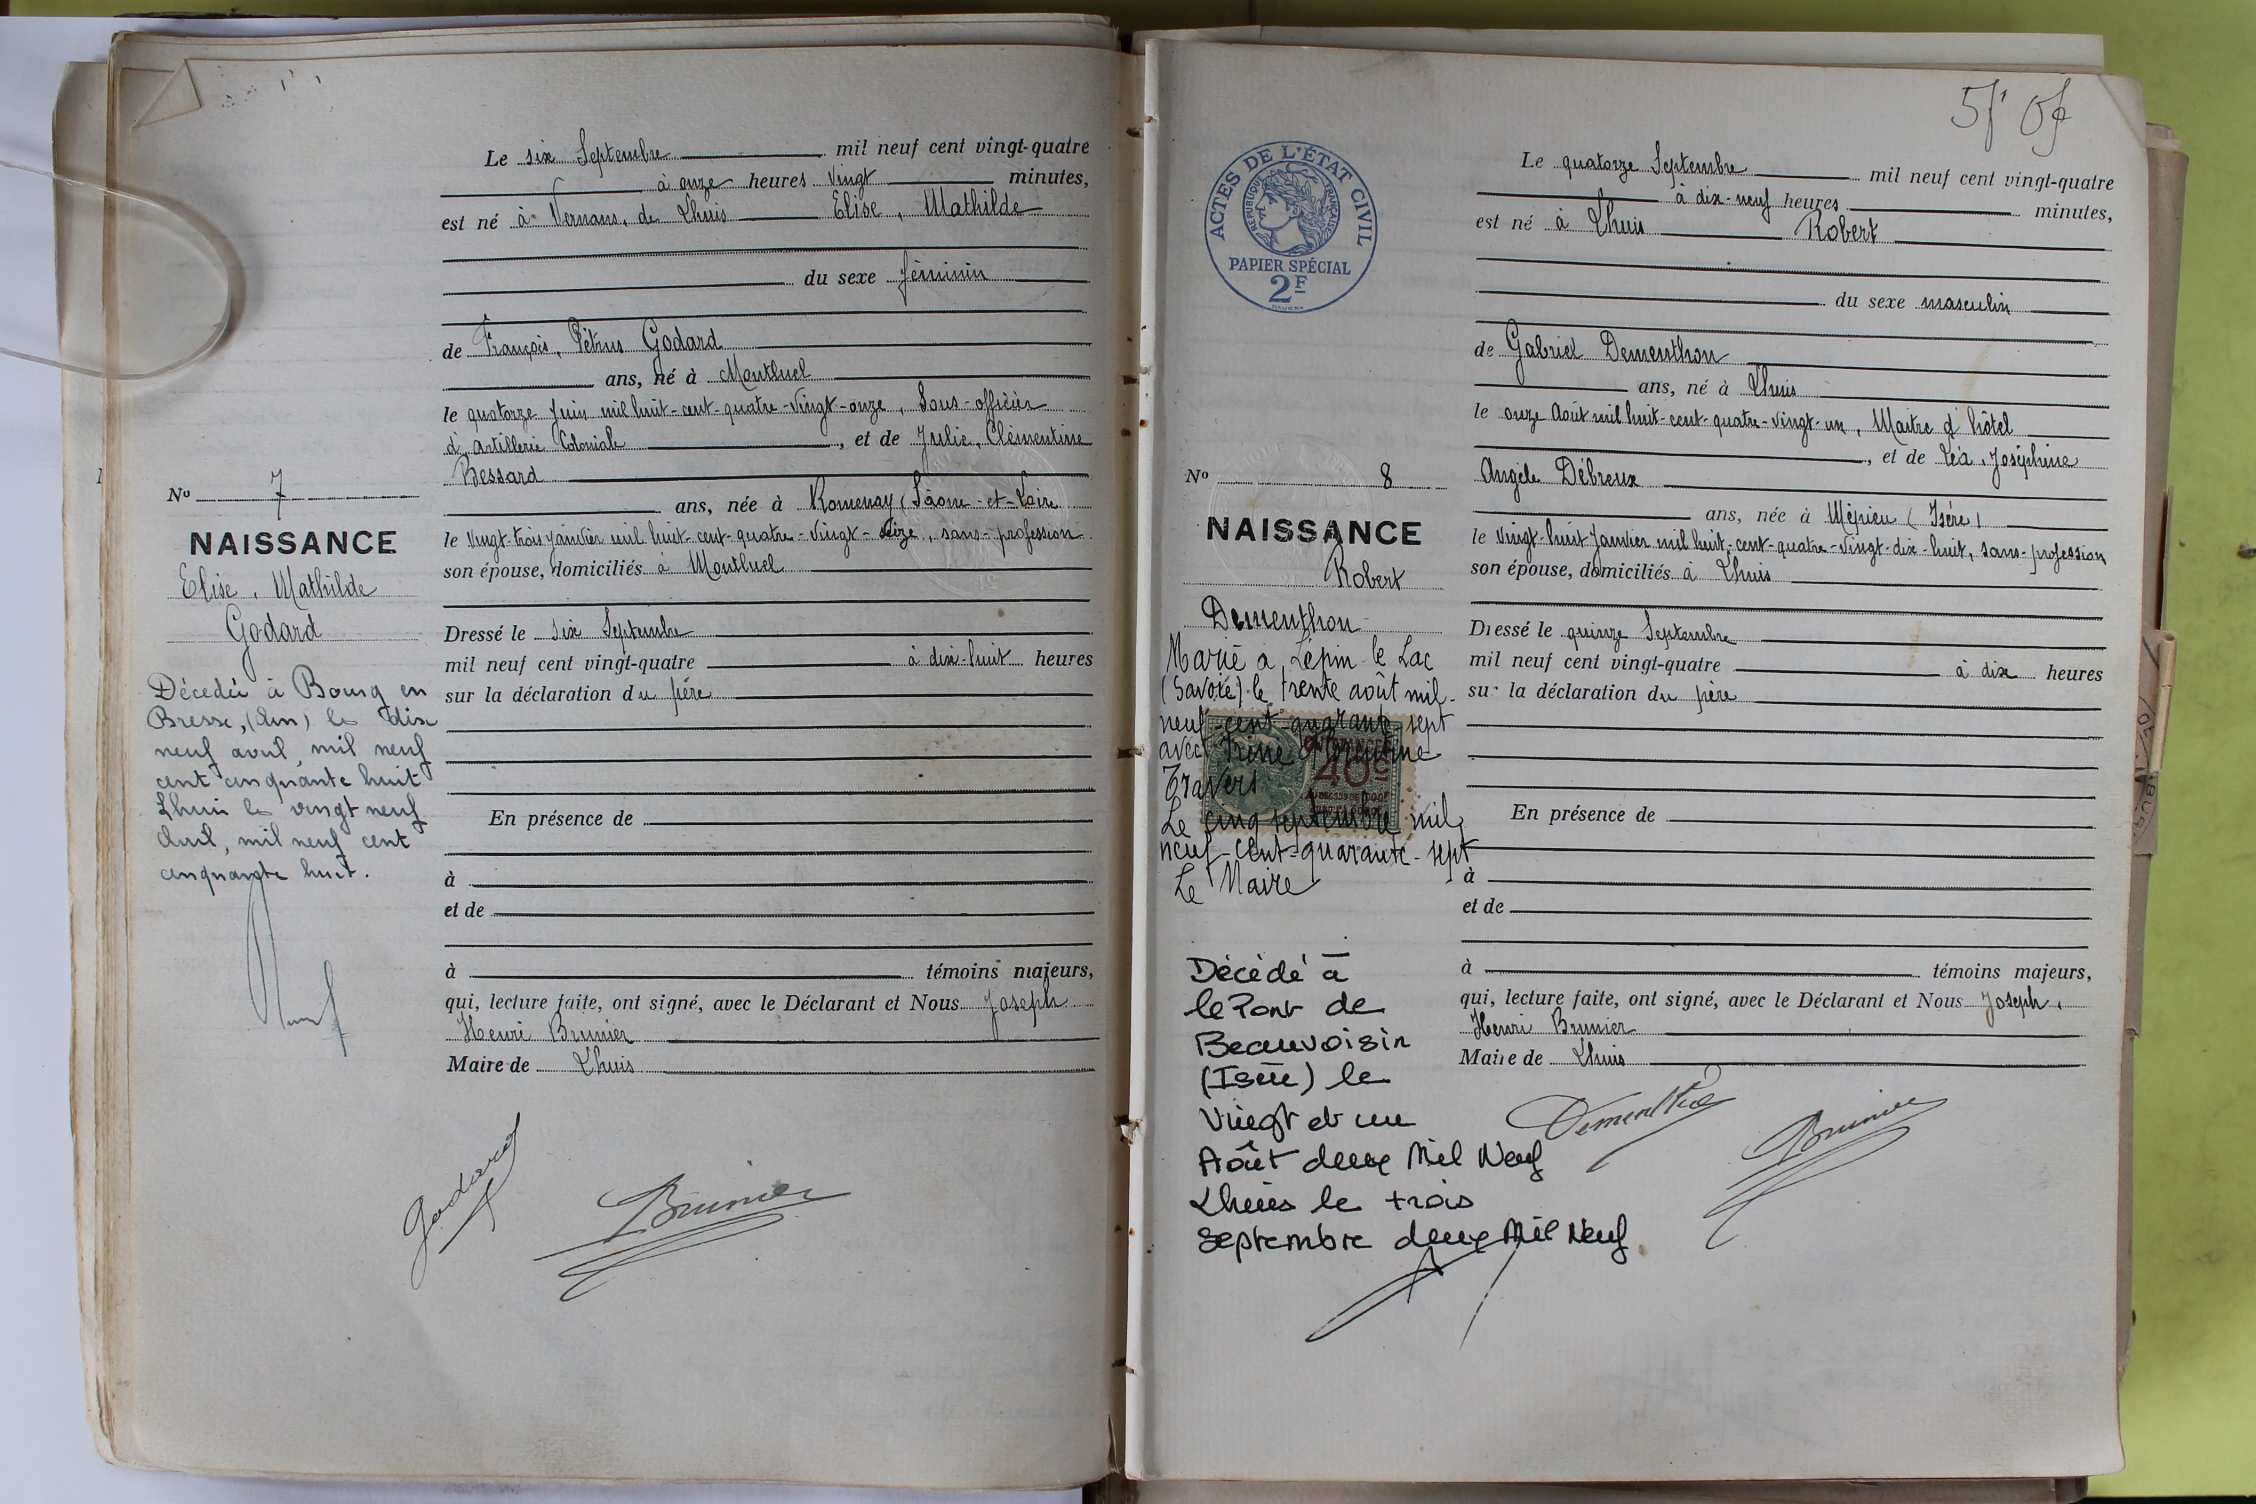 Le six Septembre mil neuf cent vingt-quatre
à onze heures vingt minutes,
est né à Vernans, de Lhuis Elise, Mathilde
du sexe féminin
de François, Pétrus Godard
ans, né à Montluel
le quatorze Juin mil huit-cent-quatre-vingt-onze, Sous-officier
d'Artillerie Coloniale, et de Julie, Clémentine
Bessard
ans, née à Romenay (Sâone-et-Loire
le vingt-trois janvier mil huit-cent-quatre-vingt-, sans-profession
son épouse, domiciliés à Montluel
Dressé le six Septembre
mil neuf cent vingt-quatre à dix-huit heures
sur la déclaration du père
En présence de
à
et de
à témoins majeurs,
qui, lecture faite, ont signé, avec le Déclarant et Nous Joseph
Henri Brunier
Maire de Lhuis
Godard
Brunier
No 7
NAISSANCE
Elise, Mathilde
Godard
Décédée à Bourg en
Bresse, (Ain) le dix
neuf avril, mil neuf
cent cinquante huit
Lhuis le vingt neuf
Avril, mil neuf cent
cinquante huit.
ACTES DE L'ÉTAT CIVIL
RÉPUBLIQUE FRANÇAISE
PAPIER SPÉCIAL
2F
Le quatorze Septembre mil neuf cent vingt-quatre
à dix-neuf heures minutes,
est né à Lhuis Robert
du sexe masculin
de Gabriel Dementhon
ans, né à Lhuis
le onze Août mil huit-cent-quatre-vingt-un, Maître d'hôtel
, et de Léa, Joséphine
Angèle Débreux
ans, née à Mépieu (Isére)
le vingt-huit Janvier mil huit-cent-quatre-vingt-dix-huit, sans-profession
son épouse, domiciliés à Lhuis
Dressé le quinze Septembre
mil neuf cent vingt-quatre à dix heures
sur la déclaration du père
En présence de
à
et de
à témoins majeurs,
qui, lecture faite, ont signé, avec le Déclarant et Nous Joseph,
Henri Brunier
Maire de Lhuis
Dementhon
Brunier
No 8
NAISSANCE
Robert
Dementhon
Marié à Lépin le Lac
(Savoie) le trente août mil-
neuf-cent quarante sept
avec
Travers
Le cinq septembre mil
neuf-cent-quarante-sept
Le Maire
40c
Décédé à
le Pont de
Beauvoisin
(Isère) le
Vingt et un
Août deux Mil Neuf
Lhuis le trois
Septembre deux Mil Neuf